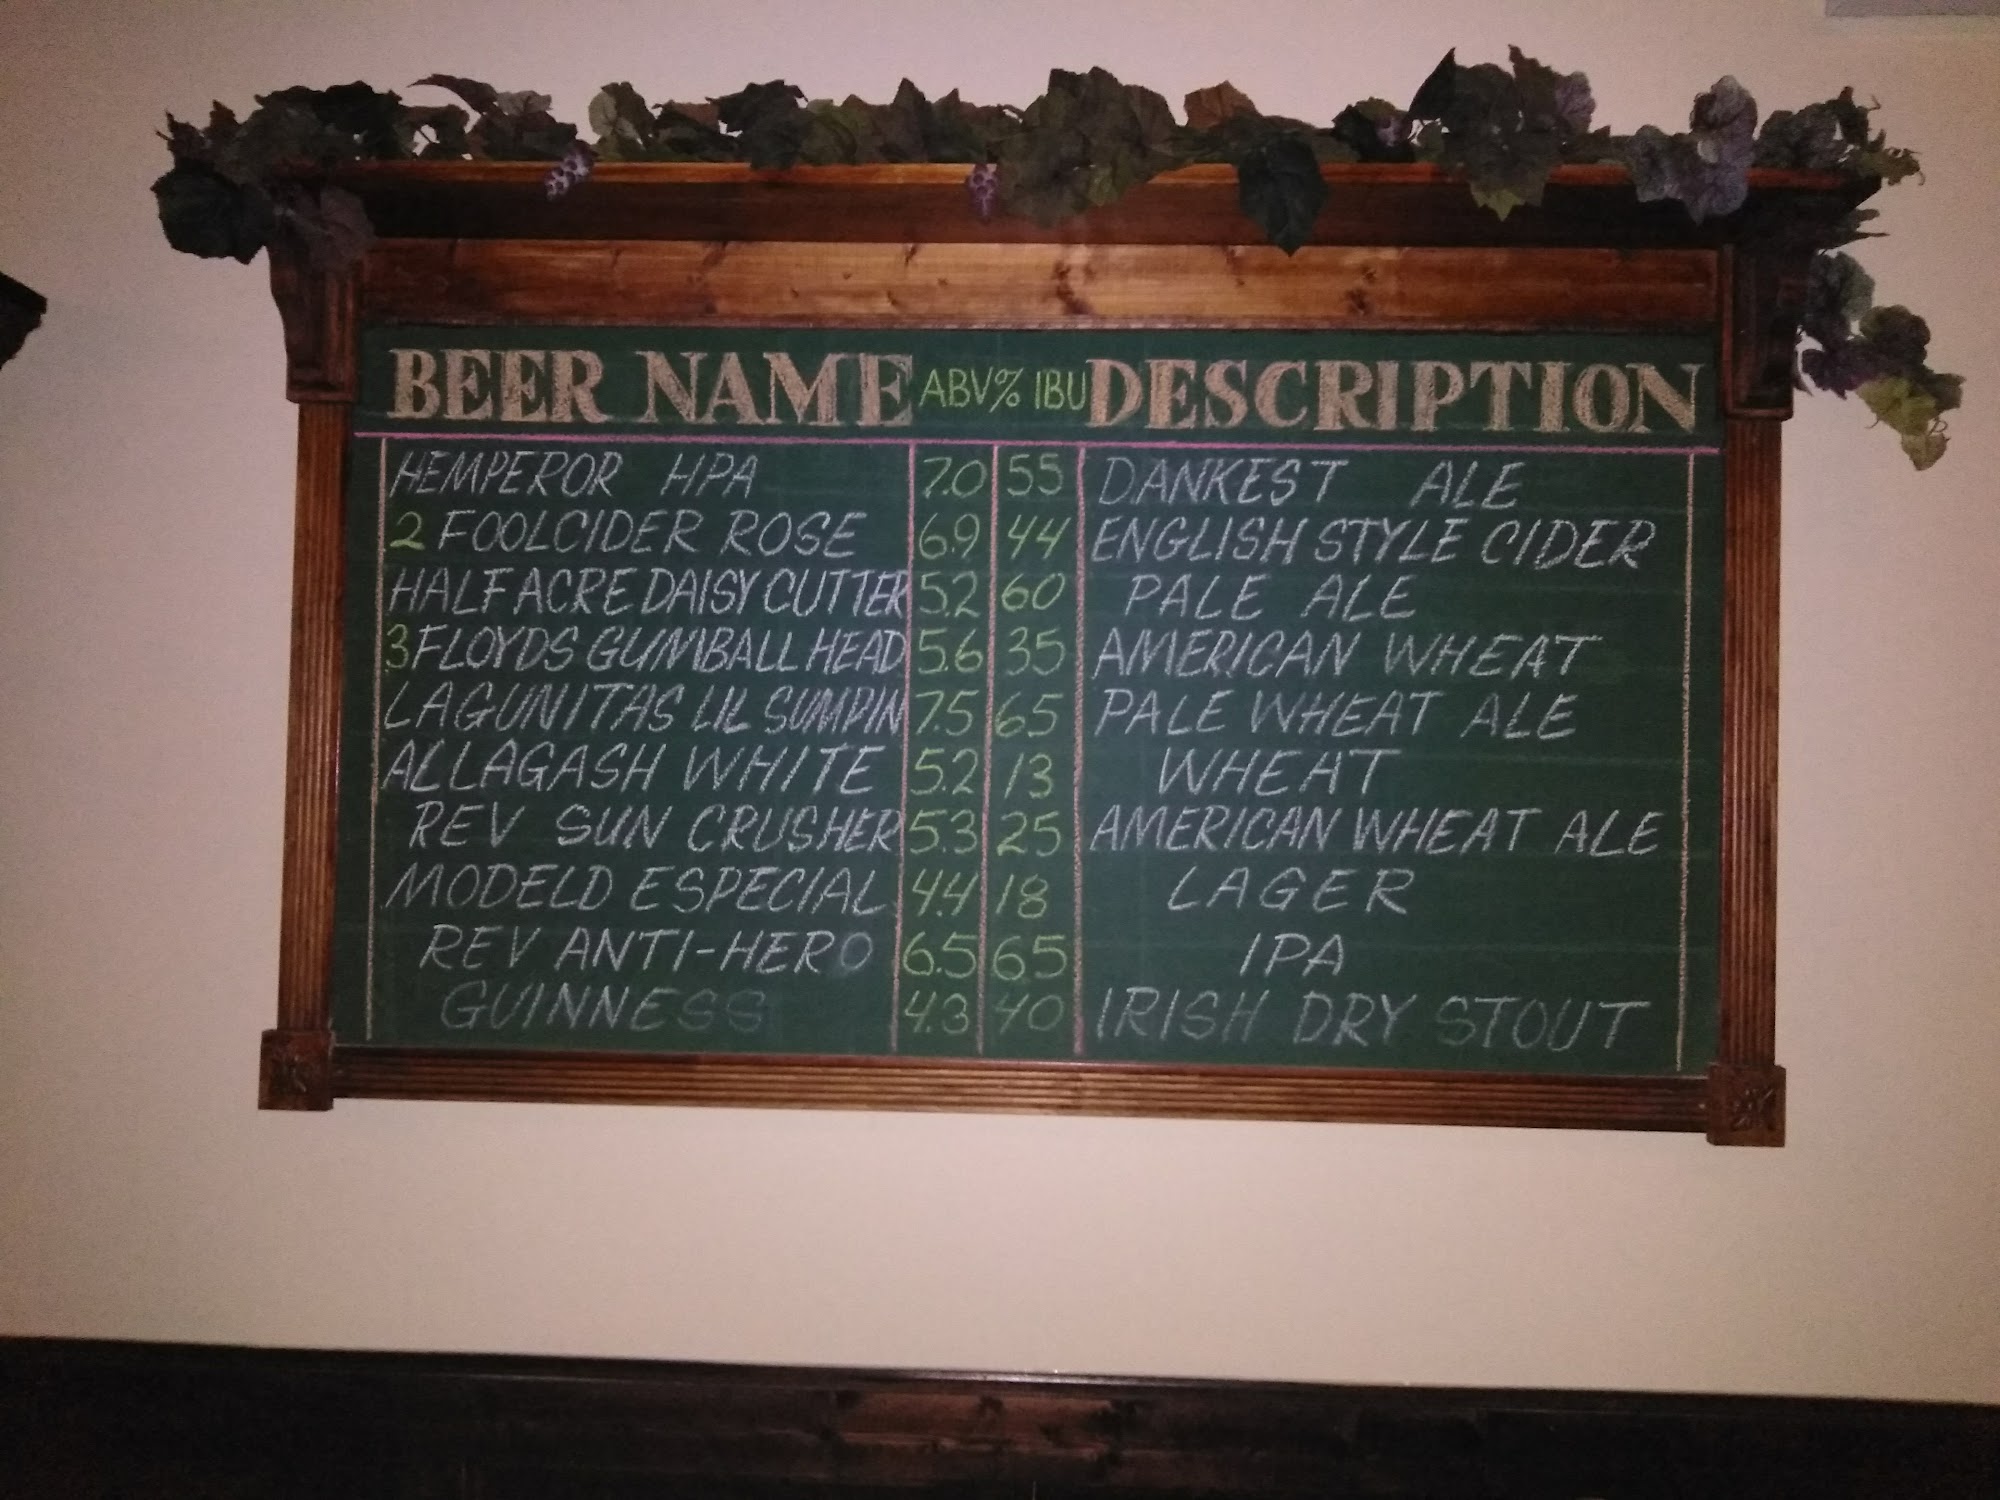 BEER NAME ABV% IBU DESCRIPTION
HEMPEROR HPA 7.0 55 DANKEST ALE
2 FOOLCIDER ROSE 6.9 44 ENGLISH STYLE CIDER
HALF ACRE DAISY CUTTER 5.2 60 PALE ALE
3 FLOYDS GUMBALL HEAD 5.6 35 AMERICAN WHEAT
LAGUNITAS LIL SUMPIN 7.5 65 PALE WHEAT ALE
ALLAGASH WHITE 5.2 13 WHEAT
REV SUN CRUSHER 5.3 25 AMERICAN WHEAT ALE
MODELO ESPECIAL 4.4 18 LAGER
REV ANTI-HERO 6.5 65 IPA
GUINNESS 4.3 40 IRISH DRY STOUT